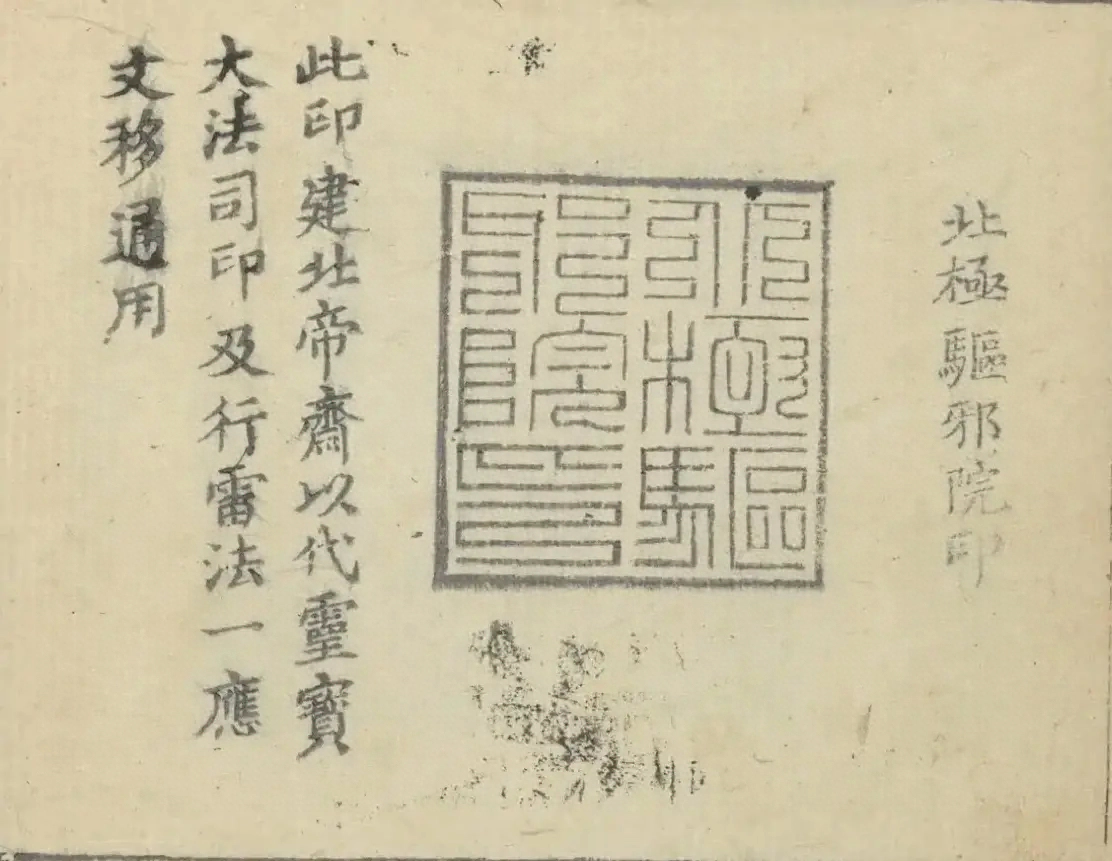 北極驅邪院印
北極驅
邪院印
此印建北帝齋以代靈寶
大法司印及行雷法一應
文移通用